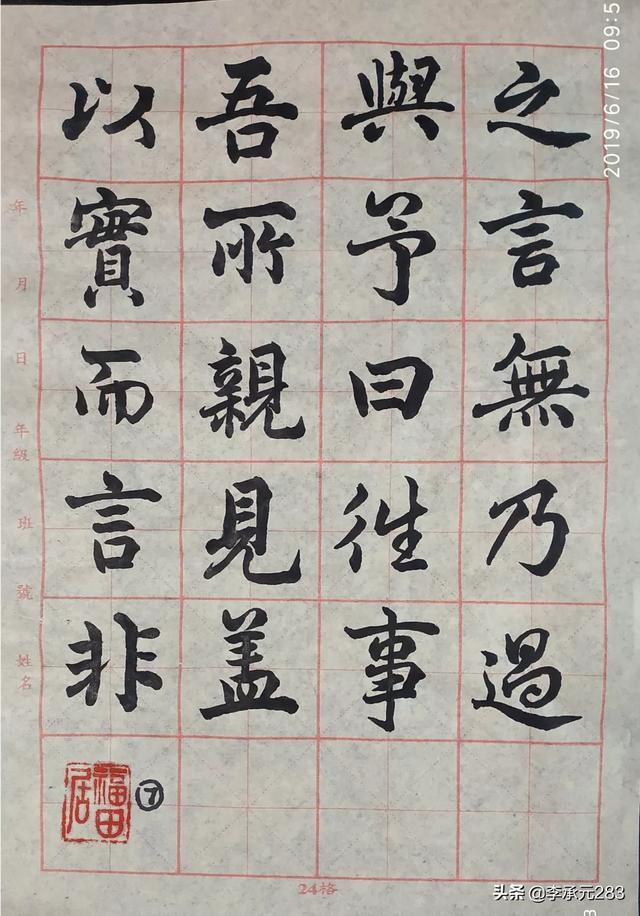 之言無乃過
與予曰往事
吾所親見盖
以實而言非
⑦
福田居
年 月 日 年級 班 號 姓名
24格
2019/6/16 09:5
头条 @李承元283